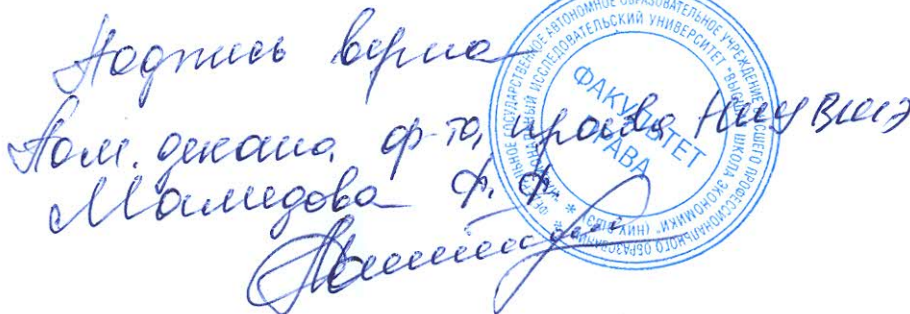 Подпись верна
Пом. декана ф-та права НИУ ВШЭ
Мамедова Ф. Ф.
ФЕДЕРАЛЬНОЕ ГОСУДАРСТВЕННОЕ АВТОНОМНОЕ ОБРАЗОВАТЕЛЬНОЕ УЧРЕЖДЕНИЕ ВЫСШЕГО ПРОФЕССИОНАЛЬНОГО ОБРАЗОВАНИЯ
"НАЦИОНАЛЬНЫЙ ИССЛЕДОВАТЕЛЬСКИЙ УНИВЕРСИТЕТ "ВЫСШАЯ ШКОЛА ЭКОНОМИКИ" (НИУ ВШЭ)
ФАКУЛЬТЕТ
ПРАВА